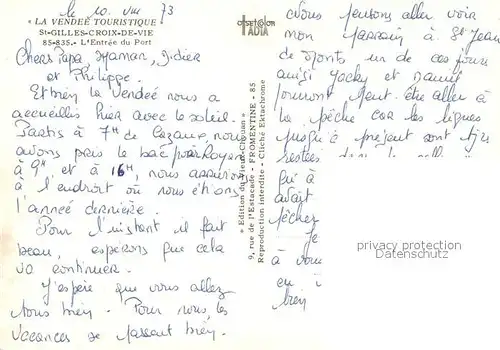 le 10. VIII 73
« LA VENDÉE TOURISTIQUE
St-GILLES-CROIX-DE-VIE
85-835. - L'Entrée du Port
Chers Papa, Maman, Didier
et Philippe.
Et bien la Vendée nous a
accueillis hier avec le soleil.
Partis à 7H de Cazaux, nous
avons pris le bac pour Royan
à 9H et à 16H, nous arrivions
à l'endroit où nous étions
l'année dernière.
Pour l'instant il fait
beau, espérons que cela
va continuer.
J'espère que vous allez
tous bien. Pour nous, les
vacances se passent bien.
TADIA
« Edition du Vieux-Chouan »
9, rue de l'Estacade - FROMENTINE - 85
Reproduction interdite - Cliché Ektachrome
Nous pensons aller voir
mon parrain à St Jean
de Monts un de ces jours
ainsi Jacky et Daniel
pourront peut-être aller à
la pêche car les lignes
jusqu'à présent sont
restées dans
à
avait
pêcher
Je
à vous
en
bien
privacy protection
Datenschutz